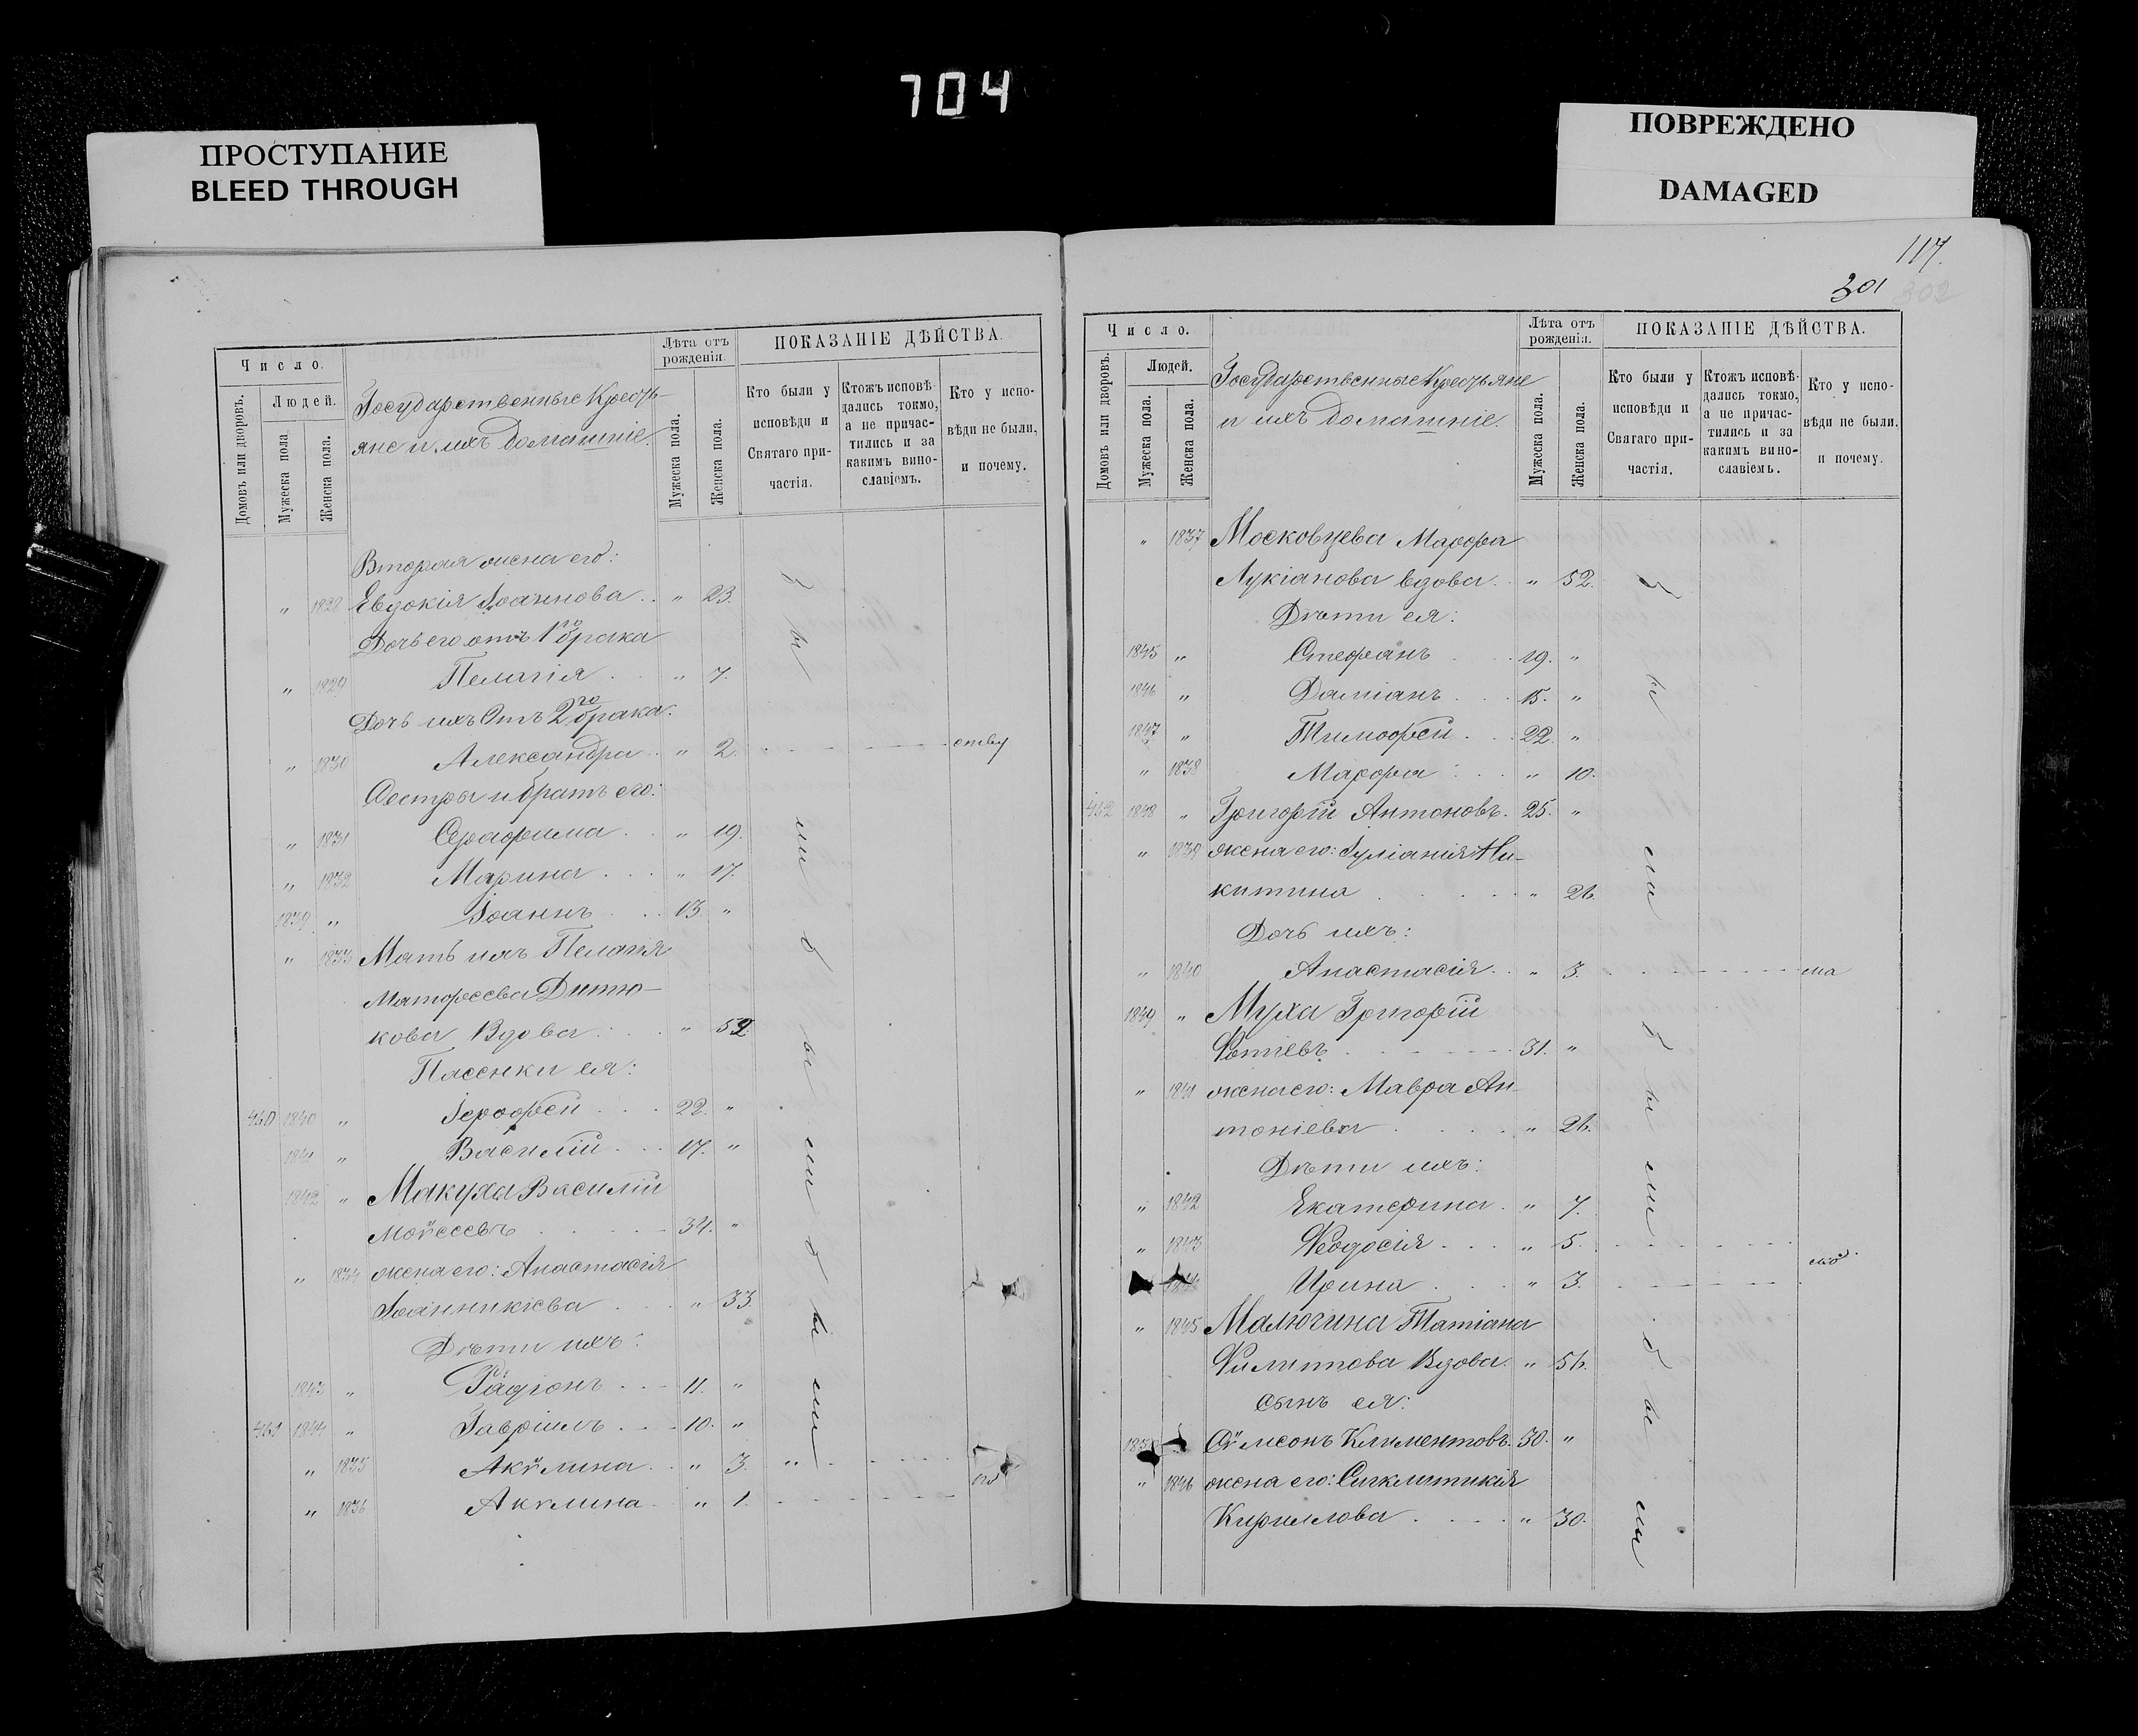 704
ПРОСТУПАНИЕ
BLEED THROUGH
ПОВРЕЖДЕНО
DAMAGED
Число.
Людей.
Домовъ или дворовъ.
Мужеска пола.
Женска пола.
Государственные Кресть-
яне и ихъ домашніе.
Лѣта отъ рожденія.
Мужеска пола.
Женска пола.
ПОКАЗАНІЕ ДѢЙСТВА.
Кто были у исповѣди и Святаго при- частія.
Ктожъ исповѣ- дались токмо, а не причас- тились и за какимъ вино- славіемъ.
Кто у испо- вѣди не были, и почему.
Вторая жена его:
„ 1828 Евдокія Іоаннова . . „ 23.
Дочь его отъ 1го брака
„ 1829 Пелагія . „ 7.
Дочь ихъ Отъ 2го брака.
„ 1830 Александра . . „ 2. ству
Сестры и братъ его:
„ 1831 Серафима . . „ 19.
„ 1832 Марина . . . „ 17.
1839 „ Іоаннъ . . . 13. „
„ 1833 Мать ихъ Пелагія
Матфеева Дитю-
кова Вдова . . . „ 52.
Пасенки ея:
460 1840 „ Іерофей . . . 22. „
1841 „ Василій . . . 17. „
1842 „ Макуха Василій
Моѵсеевъ . . . 34. „
„ 1834 жена его: Анастасія
Іоанникіева . . . „ 33.
Дѣти ихъ:
1843 „ Радіонъ . . . 11. „
461 1844 „ Гавріилъ . . . 10. „
„ 1835 Акѵлина . . „ 3. „
„ 1836 Акѵлина . „ 1.
были были были
117.
301
302
Число.
Людей.
Домовъ или дворовъ.
Мужеска пола.
Женска пола.
Государственные Крестьяне
и ихъ домашніе.
Лѣта отъ рожденія.
Мужеска пола.
Женска пола.
ПОКАЗАНІЕ ДѢЙСТВА.
Кто были у исповѣди и Святаго при- частія.
Ктожъ исповѣ- дались токмо, а не причас- тились и за какимъ вино- славіемъ.
Кто у испо- вѣди не были, и почему.
„ 1837 Московцева Марфа
Лукіанова вдова . „ 52.
Дѣти ея:
1845 „ Стефанъ . . . 19. „
1846 „ Даміанъ . . . 15. „
1847 „ Тимофей . . . 22. „
„ 1838 Марфа . . . „ 10.
462 1848 „ Григорій Антоновъ . 25. „
„ 1839 жена его: Іуліанія Ни-
китина . . . „ 26.
Дочь ихъ:
„ 1840 Анастасія . . „ 3. ма
1849 „ Муха Григорій
Фотіевъ . . . 31. „
„ 1841 жена его: Мавра Ан-
тоніева . . . „ 26.
Дѣти ихъ:
„ 1842 Екатерина . „ 7.
„ 1843 Ѳеодосія . . . „ 5.
1844 Ирина . . . „ 3.
„ 1845 Малюгина Татіана
Филиппова Вдова . „ 56.
сынъ ея:
Сѵмеонъ Климентовъ . 30. „
„ 1846 жена его: Сигклитикія
Кириллова . . . „ 30.
были были были